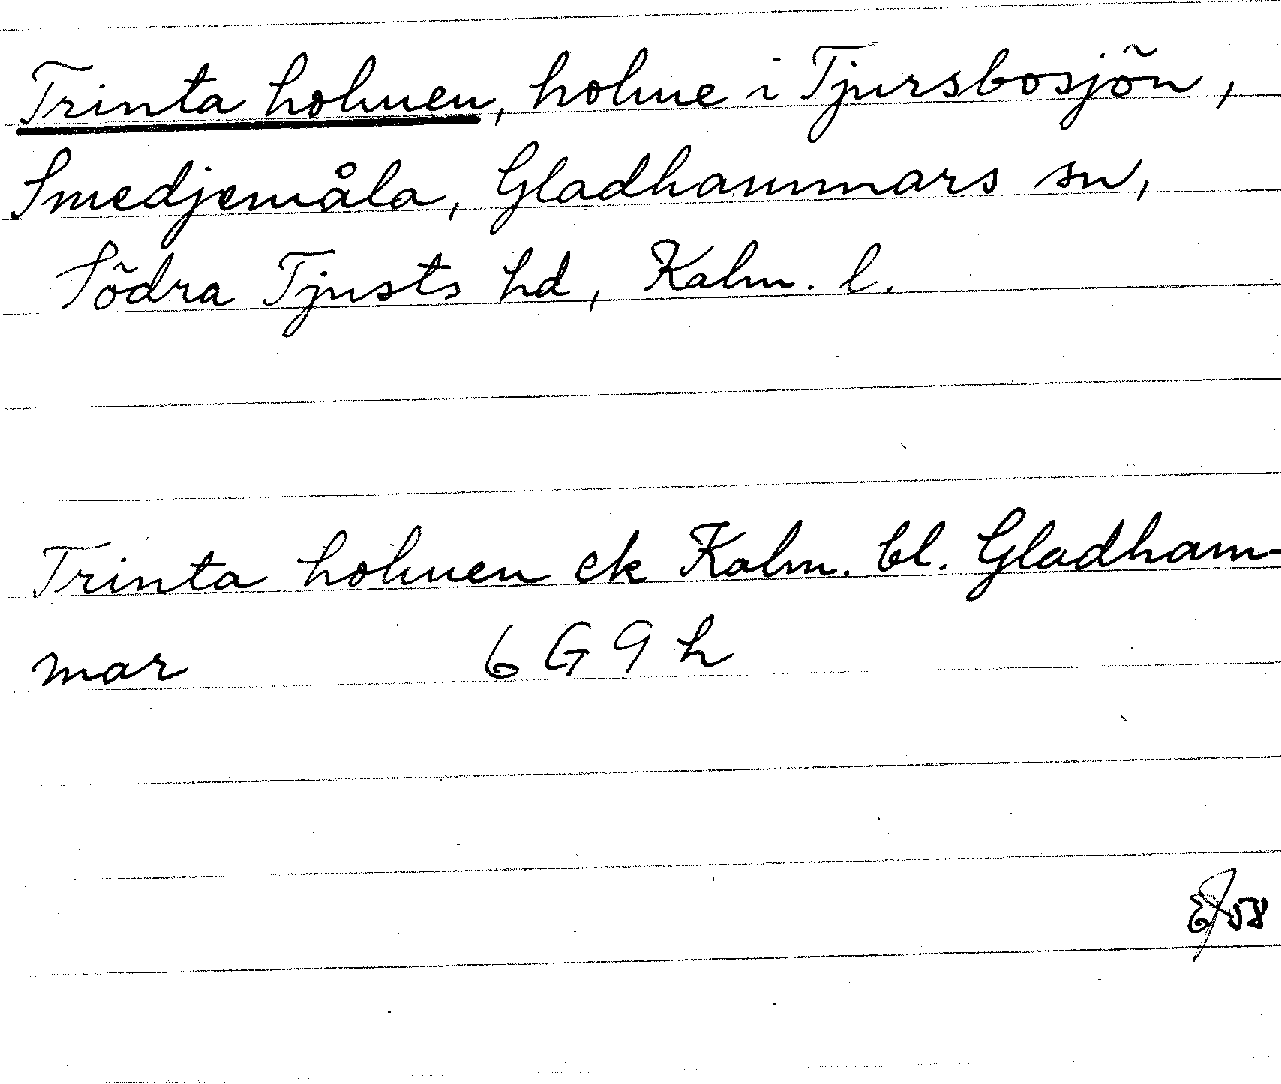 Trinta holmen, holme i Tjursbosjön,
Smedjemåla, Gladhammars sn,
Södra Tjusts hd, Kalm. l.
Trinta holmen ek Kalm. bl. Gladham-
mar 6 G 9 h
/58